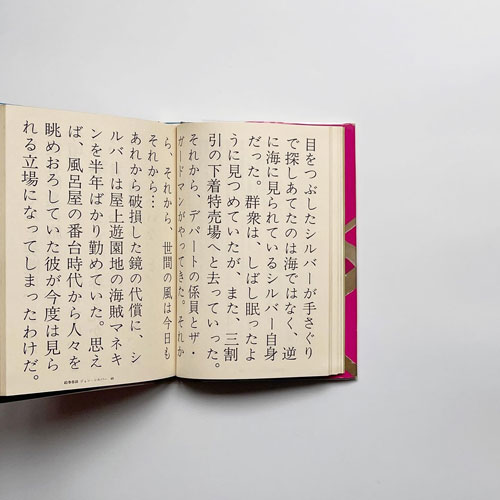 目をつぶしたシルバーが手さぐり
で探しあてたのは海ではなく、逆
に海に見られているシルバー自身
だった。群衆は、しばし眠ったよ
うに見つめていたが、また、三割
引の下着特売場へと去っていった。
それから、デパートの係員とザ・
ガードマンがやってきた。それか
ら、それから、世間の風は今日も
それから…
あれから破損した鏡の代償に、シ
ルバーは屋上遊園地の海賊マネキ
ンを半年ばかり勤めていた。思え
ば、風呂屋の番台時代から人々を
眺めおろしていた彼が今度は見ら
れる立場になってしまったわけだ。